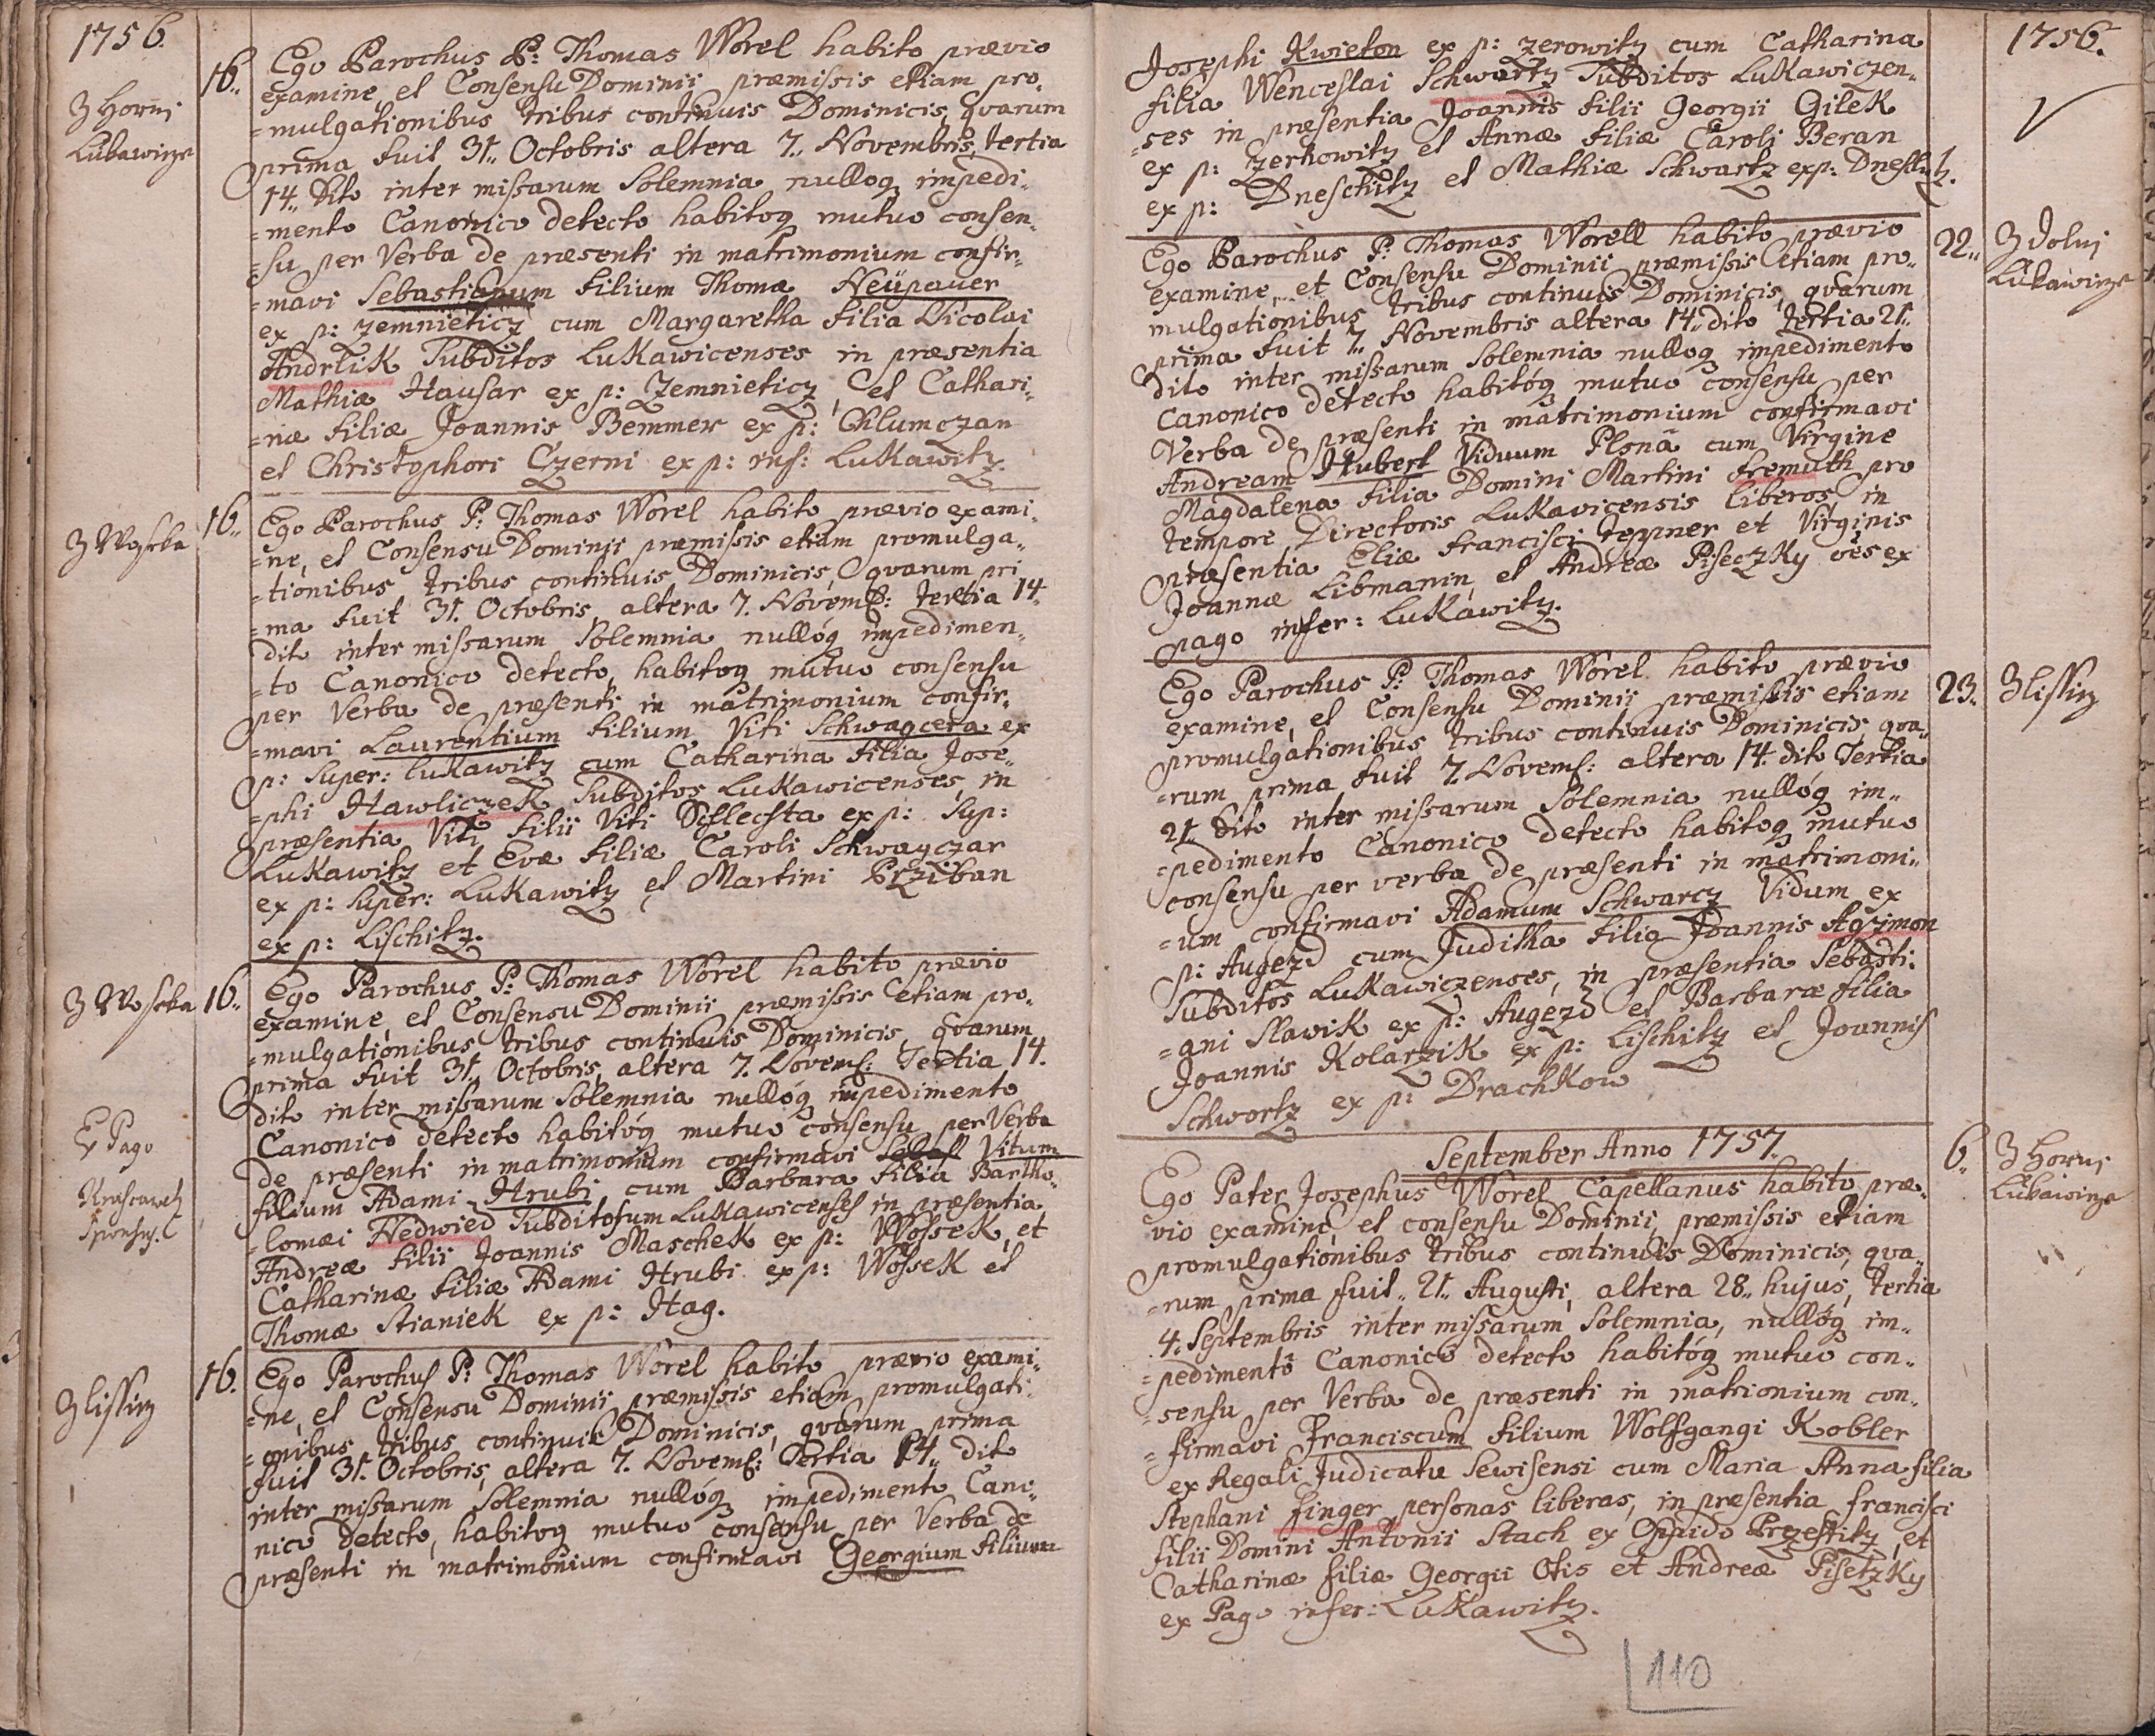 1756.
Z Horni
Lukawicze
16..
Ego Parochus P: Thomas Worel habito prævio
examine et Consensu Dominii præmissis etiam pro,,
=mulgationibus tribus continuis Dominicis, qvarum
prima fuit 31.. Octobris altera 7.. Novembris, tertia
14.. dito inter missarum Solemnia nulloq impedi,,
=mento Canonico detecto habitoq mutuo consen,,
=su per Verba de præsenti in matrimonium confir,,
=mavi Sebastianum filium Thomæ Neüpauer
ex p: Zemnieticz cum Margaretha filia Nicolai
Andrlik Subditos Lukawicenses in præsentia
Mathiæ Hausar ex p: Zemnieticz, et Cathari,,
=næ filiæ Joannis Bemmer ex p: Chlumczan
et Christophori Czerni ex p: inf: Lukawitz.
Z Woseka
16..
Ego Parochus P: Thomas Worel habito prævio exami,,
=ne, et Consensu Dominii præmissis etiam promulga,,
=tionibus tribus continuis Dominicis, qvarum pri
=ma fuit 31. Octobris altera 7. Novemb: tertia 14.
dito inter missarum Solemnia nullóq impedimen,,
=to Canonico detecto, habitoq mutuo consensu
per Verba de præsenti in matrimonium confir,,
=mavi Laurentium filium Viti Schwagcera ex
p: super: Lukawitz cum Catharina filia Jose,,
=phi Hawliczek Subditos Lukawicenses, in
præsentia Viti filii Viti Schlechta ex p: Sup:
Lukawitz et Evæ filiæ Caroli Schwagczar
ex p: super: Lukawitz et Martini Prziban
ex p: Lischitz.
Z Woseka
16..
Ego Parochus P: Thomas Worel habito prævio
examine, et Consensu Dominii præmissis etiam pro,,
=mulgationibus tribus continuis Dominicis, qvarum
prima fuit 31.. Octobris, altera 7. Novemb: Tertia 14.
dito inter missarum Solemnia nullóq impedimento
Canonico detecto habitóq mutuo consensu per Verba
de præsenti in matrimonium confirmavi Vitum
filium Adami Hrubi cum Barbara filia Bartho,,
=lomæi Nedwied Subditosum Lukawicenses in præsentia
Andreæ filii Joannis Maschek ex p: Wossek, et
Catharinæ filiæ Adami Hrubi ex p: Wossek et
Thomæ Stianiek ex p: Hag.
Ex Pago
Z lissicz
16.
Ego Parochus P: Thomas Worel habito prævio exami,,
=ne, et Consensu Dominii præmissis etiam promulgati,,
=onibus tribus continuis Dominicis, qvarum prima
fuit 31. Octobris, altera 7. Novemb: Tertia 14.. dito
inter missarum Solemnia nullóq impedimento Cano,,
nico detecto, habitoq mutuo consensu per Verba de
præsenti in matrimonium confirmavi Georgium filium
1756.
Josephi Kwieton ex p: Zerowitz cum Catharina
filia Wenceslai Schwartz Subditos Lukawiczen,,
=ses in præsentia Joannis filii Georgii Gilek
ex p: Zerkowitz et Annæ filiæ Caroli Beran
ex p: Dneschitz et Mathiæ Schwartz ex p: Dneschitz.
22..
Z Dolni
Lukawicze
Ego Parochus P: Thomas Worell habito prævio
examine, et Consensu Dominii præmissis etiam pro,,
mulgationibus tribus continuis Dominicis, qvarum
prima fuit 7.. Novembris altera 14.. dito tertia 21..
dito inter missarum Solemnia nulloq impedimento
Canonico detecto habitóq mutuo consensu per
Verba de præsenti in matrimonium confirmavi
Andream Hubert Viduum Plsnâ cum Virgine
Magdalena filia Domini Martini Fremuth pro
tempore Directoris Lukavicensis liberos, in
præsentia Eliæ Francisci Teppner et Virginis
Joannæ Libmanin, et Andreæ Piseczky oēs ex
pago infer: Lukawitz.
23.
Z lissicz
Ego Parochus P: Thomas Worel habito prævio
examine, et Consensu Dominii præmissis etiam
promulgationibus tribus continuis Dominicis, qva,,
=rum prima fuit 7. Novemb: altera 14. dito Tertia
21. dito inter missarum Solemnia nullóq im,,
=pedimento Canonico detecto habitoq mutuo
consensu per verba de præsenti in matrimoni,,
=um confirmavi Adamum Schwarcz Vidum ex
p: Augezd cum Juditha filia Joannis Agzimon
Subditos Lukawiczenses, in præsentia Sebasti,,
=ani Slawik ex p: Augezd et Barbaræ filia
Joannis Kolarzik ex p: Lischitz et Joannis
Schwortz ex p: Drachkow
September Anno 1757.
6..
Z Horni
Lukawicze
Ego Pater Josephus Worel Capellanus habito præ,,
vio examine, et consensu Dominii, præmissis etiam
promulgationibus tribus continuis Dominicis, qva,,
=rum prima fuit.. 21.. Augusti, altera 28.. hujus, tertia
4. Septembris inter missarum Solemnia, nullóq im,,
=pedimento Canonico detecto habitóq mutuo con,,
=sensu per Verba de præsenti in matrionium con,,
=firmavi Franciscum filium Wolfgangi Kobler
ex Regali Judicatu Sewisensi cum Maria Anna filia
Stephani Finger personas liberas, in præsentia Francisci
filii Domini Antonii Stach ex Oppido Przestitz, et
Catharinæ filiæ Georgii Otis et Andreæ Pisetzky
ex Pago infer: Lukawitz.
110